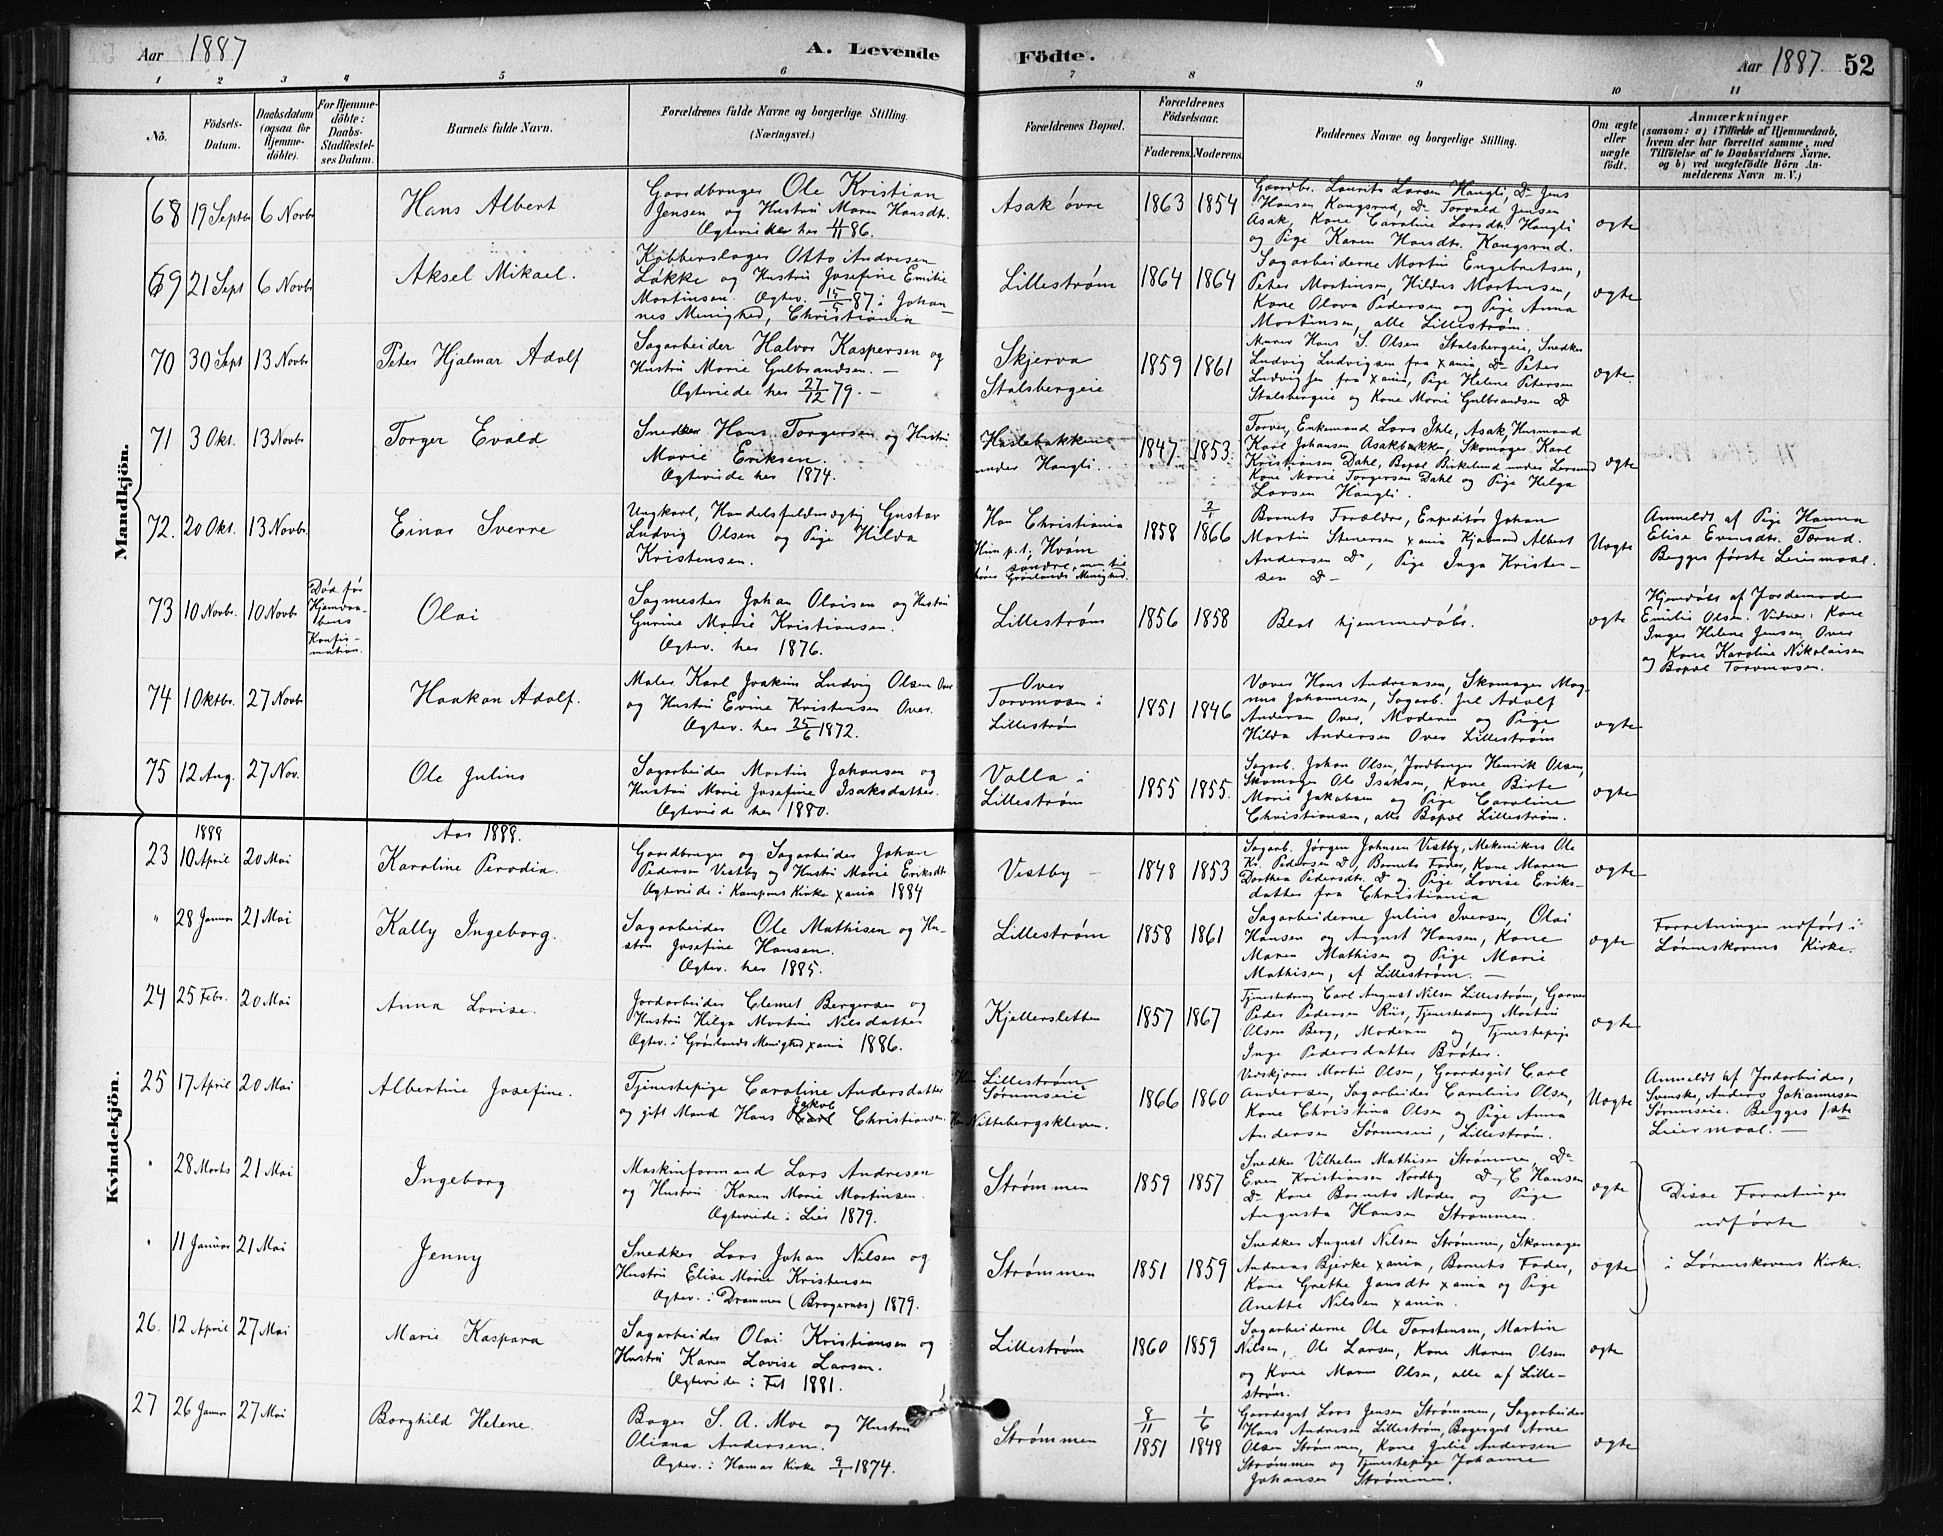 Aar 1887
A. Levende
Födte.
Aar 1887.
52
1 2 3 4 5 6 7 8 9 10 11
No.
Födsels-
Datum.
Daabsdatum
(ogsaa for
Hjemme-
döbte).
For Hjemme-
döbte:
Daabs-
Stadfæstel-
ses Datum.
Barnets fulde Navn.
Forældrenes fulde Navne og borgerlige Stilling.
(Næringsvei.)
Forældrenes Bopæl.
Forældrenes
Födselsaar.
Faderens. Moderens.
Faddernes Navne og borgerlige Stilling.
Om ægte
eller
uægte
födt.
Anmærkninger
(saasom: a) i Tilfælde af Hjemmedaab,
hvem der har forrettet samme, med
Tilföielse af to Daabsvidners Navne,
og b) ved uægtefödte Börn An-
melderens Navn m. V.)
Mandkjön.
68 19 Septbr 6 Novbr
Hans Albert
Gaardbruger Ole Kristian
Jensen og Hustru Maren Hansdt.
Ægteviede her 4/11 86.
Asak øvre
1863 1854
Gaardbr. Laurits Larsen Hangli, Do Jens
Hansen Kongsrud, Do Torvald Jensen
Asak, Kone Caroline Larsdt. Hangli
og Pige Karen Hansdt. Kongsrud.
ægte
69 21 Sept 6 Novbr
Aksel Mikael.
Kobberslager Otto Andresen
Løkke og Hustru Josefine Emilie
Mortinsen. Ægtev. 15/5 87 i Johan-
nes Menighed, Christiania
Lillestrøm
1864 1864
Sagarbeiderne Martin Engebretsen,
Peter Martinsen, Hildus Martinsen,
Kone Olava Pedersen og Pige Anna
Martinsen, alle Lillestrøm.
ægte
70 30 Sept 13 Novbr
Peter Hjalmar Adolf
Sagarbeider Halvor Kaspersen og
Hustru Marie Gulbrandsen. —
Ægteviede her 27/12 79. —
Skjerva
Stalsbergeie
1859 1861
Murer Hans S. Olsen Stalsbergeie, Snedker
Ludvig Ludvigsen fra Xania, Do Peter
Ludvigsen fra Xania, Pige Helene Petersen
Stalsbergeie og Kone Marie Gulbrandsen Do
ægte.
71 3 Okt. 13 Novbr
Torger Evald
Snedker Hans Torgersen og Hustru
Marie Eriksen.
Ægteviede her 1874.
Haslebakken
under Hangli.
1847. 1853.
Farver, Enkemand Lars Ihle, Asak, Husmand
Karl Johansen Asakbakke, Skomager Karl
Kristiansen Dahl, Bopæl Birkelund under
Kone Marie Torgersen Dahl og Pige Helga
Larsen Hangli.
ægte
72. 20 Okt. 13 Novbr.
Einar Sverre
Ungkarl, Handelsfuldmægtig Gustav
Ludvig Olsen og Pige Hilda
Kristensen.
Han Christiania
Hun p.t. Hvam
søndre, men til-
hører Grønlands Menighed.
1858 2/1 1866
Barnets Forældre, Expeditør Johan
Martin Stenersen Xania Hjalmar Albert
Andersen Do, Pige Inga Kristen-
sen Do
Uægte
Anmeldt af Pige Hanna
Elise Evensdt. Torud.
Begges første Leiermaal.
73 10 Novbr. 10 Novbr
Død før
Hjemdaa-
bens
Konfir-
mation.
Olai
Sagmester Johan Olaisen og Hustru
Gurine Marie Kristiansen.
Ægtev. her 1876.
Lillestrøm
1856 1858
Blot hjemmedøbt.
ægte
Hjemdøbt af Jordemoder
Emilie Olsen. Vidner: Kone
Inger Helene Jensen Over
og Kone Karoline Nikolaisen
Bopæl Torvmosen.
74 1 Oktbr. 27 Novbr
Haakon Adolf.
Maler Karl Joakim Ludvig Olsen Over
og Hustru Evine Kristensen Over.
Ægtev. her 25/6 1872.
Over
Torvmosen i
Lillestrøm
1851 1846
Væver Hans Andreasen, Skomager Mag-
nus Johannesen, Sagarb. Jul Adolf
Andersen Over, Moderen og Pige
Hilda Andersen Over Lillestrøm
ægte
75 12 Aug. 27 Nov.
Ole Julius
Sagarbeider Martin Johansen og
Hustru Marie Josefine Isaksdatter.
Ægteviede her 1880.
Volla i
Lillestrøm
1855 1855.
Sagarb. Johan Olsen, Jordbruger Henrik Olsen,
Skomager Ole Isaksen, Kone Birte
Marie Jakobsen og Pige Caroline
Christiansen, alle Bopæl Lillestrøm.
ægte
Kvindekjön.
Aar 1888.
1888
23 10 April 20 Mai
Karoline Perodia.
Gaardbruger og Sagarbeider Johan
Pedersen Vestby og Hustru Marie Eriksdt.
Ægteviede i Kampens Kirke Xania 1884
Vestby —
1848 1853
Sagarb. Jørgen Johnsen Vestby, Mekaniker Ole
Kr. Pedersen Do, Barnets Fader, Kone Maren
Dorthea Pedersdt. Do og Pige Lovise Eriks-
datter fra Christiania
ægte
" 28 Januar 21 Mai
Kally Ingeborg.
Sagarbeider Ole Mathisen og Hu-
stru Josefine Hansen.
Ægtev. her 1885.
Lillestrøm
1858 1861
Sagarbeiderne Julius Iversen, Olai
Hansen og August Hansen, Kone
Maren Mathisen og Pige Marie
Mathisen, af Lillestrøm. —
ægte
Forretningen udført i
Lørenskovens Kirke.
24 25 Febr. 20 Mai
Anna Lovise.
Jordarbeider Clemet Bergersen og
Hustru Helga Martine Nilsdatter
Ægtev. i Grønlands Menighed Xania 1886.
Kjellersletten
1857 1867
Tjenestedreng Carl August Nilsen Lillestrøm, Garver
Peder Pedersen Riis, Tjenestedreng Martin
Olsen Berg, Moderen og Tjenestepige
Inge Pedersdatter Bråter.
ægte
25 17 April 20 Mai
Albertine Josefine.
Tjenestepige Caroline Andersdatter
og gift Mand Hans Jakob Christiansen.
Hun Lillestrøm
Sørumseie
Han Nittebergskleven.
1866 1860
Vedskjører Martin Olsen, Gaardsgut Carl
Andersen, Sagarbeider Carelius Olsen,
Kone Christina Olsen og Pige Anna
Andersen Sørumseie, Lillestrøm.
Uægte
Anmeldt af Jordarbeider,
Svenske, Anders Johannesen
Sørumseie. Begges 1ste
Leiermaal. —
" 28 Marts 21 Mai
Ingeborg
Maskinformand Lars Andresen
og Hustru Karen Marie Martinsen.
Ægteviede i Lier 1879.
Strømmen
1859 1857
Snedker Vilhelm Mathisen Strømmen, Do
Even Kristiansen Nordby Do, C Hansen
Do Kone Barnets Moder og Pige
Augusta Hansen Strømmen.
ægte
Disse Forretninger
udførte
i Lørenskovens Kirke.
" 11 Januar 21 Mai
Jenny
Snedker Lars Johan Nilsen og
Hustru Elise Marie Kristensen
Ægtev. i Drammen (Bragernæs) 1879.
Strømmen
1851 1859
Snedker August Nilsen Strømmen, Skomager
Andreas Bjerke Xania, Barnets Fader,
Kone Grethe Jansdtr Xania og Pige
Anette Nilsen Xania.
ægte
26. 12 April 27 Mai
Marie Kaspara
Sagarbeider Olai Kristiansen og
Hustru Karen Lovise Larsen.
Ægteviede i Fet 1881.
Lillestrøm
1860 1859
Sagarbeiderne Ole Torstensen, Martin
Nilsen, Ole Larsen, Kone Maren Olsen
og Kone Maren Olsen, alle af Lille-
strøm.
ægte
27 26 Januar 27 Mai
Borghild Helene.
Bager S. A. Moe og Hustru
Oliana Andersen.
Ægtev. i Hamar Kirke 9/1 1874.
Strømmen
8/11 1851 1/6 1848
Gaardsgut Lars Jensen Strømmen, Sagarbeider
Hans Andresen Lillestrøm, Bagergut Arne
Olsen Strømmen, Kone Julie Andersen
Strømmen og Tjenestepige Johanne
Johansen Strømmen.
ægte